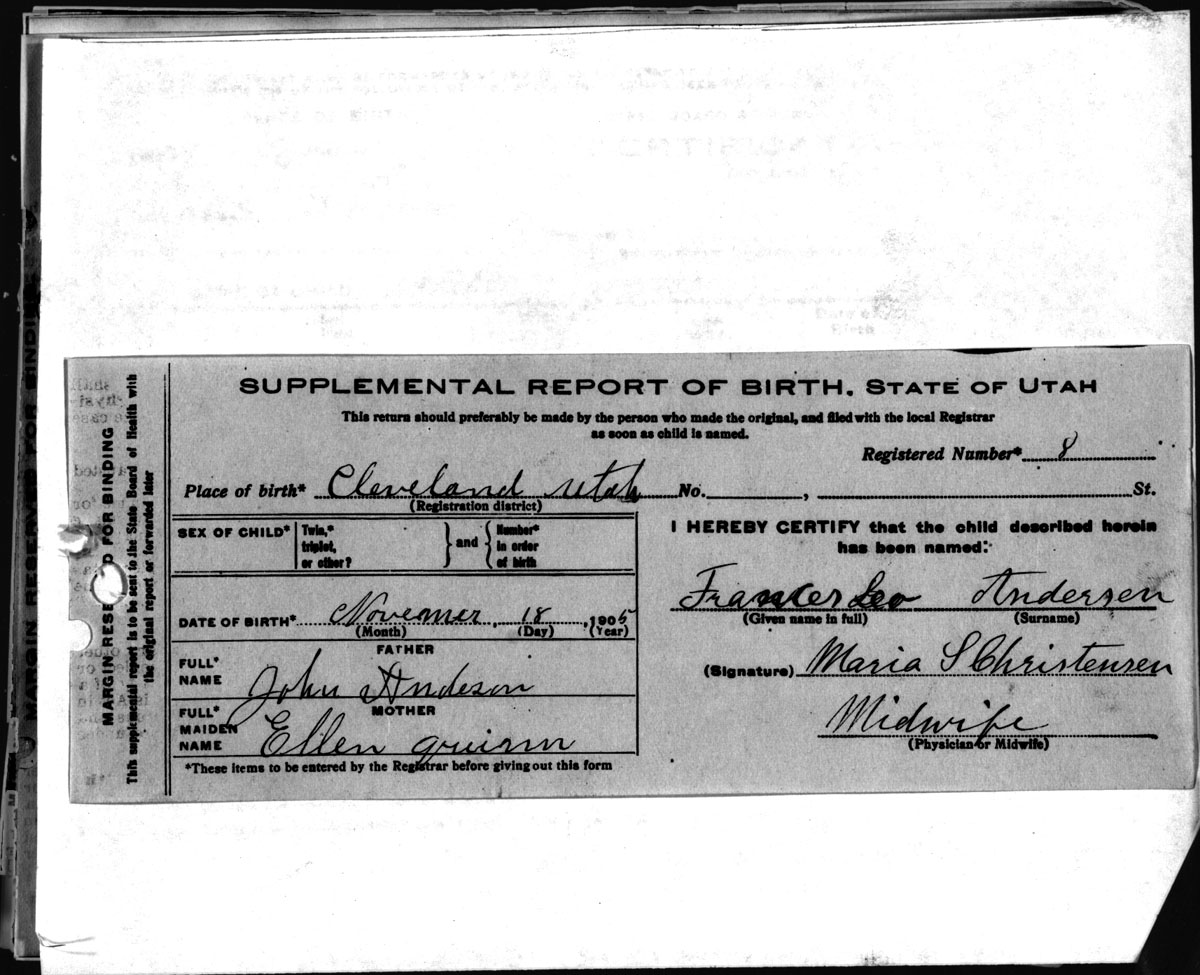 SUPPLEMENTAL REPORT OF BIRTH. STATE OF UTAH
This return should preferably be made by the person who made the original, and filed with the local Registrar
as soon as child is named.
Registered Number* 8
Place of birth* Cleveland Utah No. , St.
(Registration district)
SEX OF CHILD* Twin,* triplet, or other? } and { Number* in order of birth
DATE OF BIRTH* Novemer, 18, 1905
(Month) (Day) (Year)
FATHER
FULL* NAME John Andeson
MOTHER
FULL* MAIDEN NAME Ellen
*These items to be entered by the Registrar before giving out this form
I HEREBY CERTIFY that the child described herein
has been named:
Frances Leo Andersen
(Given name in full) (Surname)
(Signature) Maria S Christensen
Midwife
(Physician or Midwife)
MARGIN RESE D FOR BINDING
This supplemental report is to be sent to the State Board of Health with
the original report or forwarded later
MARGIN RESERVED FOR BINDING